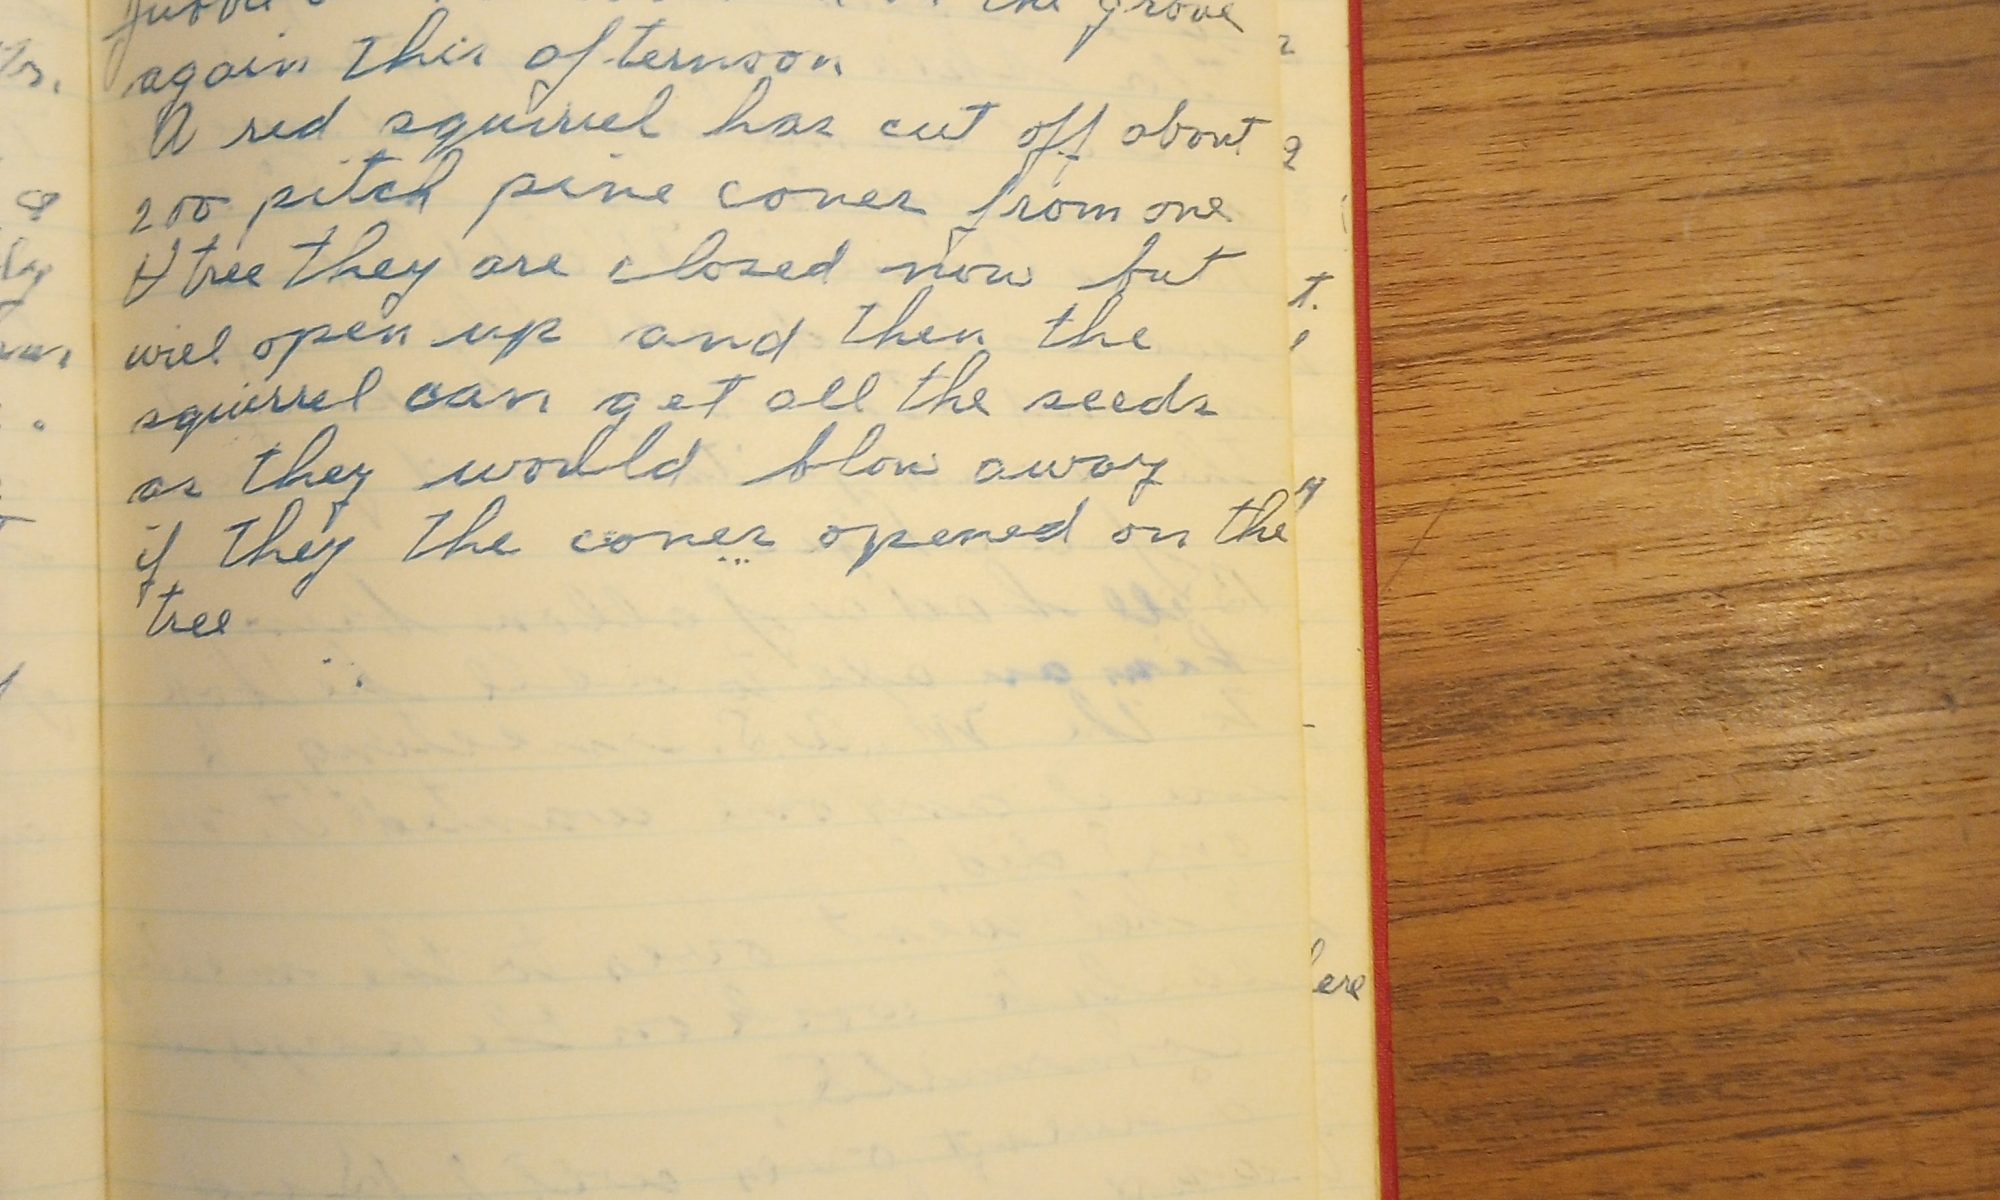 the grove
again this afternoon
A red squirrel has cut off about
200 pitch pine cones from one
tree they are closed now but
will open up and then the
squirrel can get all the seeds
as they would blow away
if they the cones opened on the
tree
ere